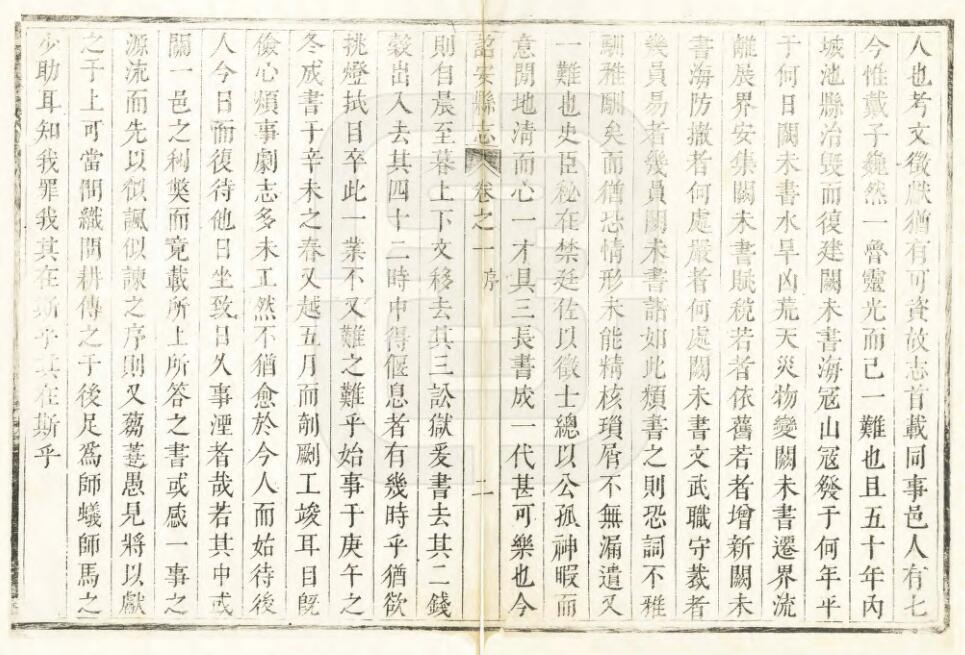 人也考文徵獻猶有可資故志首載同事邑人有七
今惟戴子巍然一魯靈光而已一難也且五十年內
城池縣治毀而復建闕未書海寇山寇發于何年平
于何日闕未書水旱凶荒天災物變闕未書遷界流
離展界安集闕未書賦稅若者依舊若者增新闕未
書海防撤者何處嚴者何處闕未書文武職守裁者
幾員易者幾員闕未書諸如此類書之則恐詞不雅
馴雅馴矣而猶恐情形未能精核瑣屑不無漏遺又
一難也史臣秘在禁廷佐以徵士總以公孤神暇而
意閒地清而心一才具三長書成一代甚可樂也今
詔安縣志 卷之一 序 二
則自晨至暮上下文移去其三訟獄爰書去其二錢
穀出入去其四十二時中得偃息者有幾時乎猶欲
挑燈拭目卒此一業不又難之難乎始事于庚午之
冬成書于辛未之春又越五月而剞劂工竣耳目既
儉心煩事劇志多未工然不猶愈於今人而姑待後
人今日而復待他日坐致日久事湮者哉若其中或
關一邑之利弊而竟載所上所答之書或感一事之
源流而先以似諷似諫之序則又蒭蕘愚見將以獻
之予上可當問織問耕傳之于後足爲師蟻師馬之
少助耳知我罪我其在斯乎其在斯乎